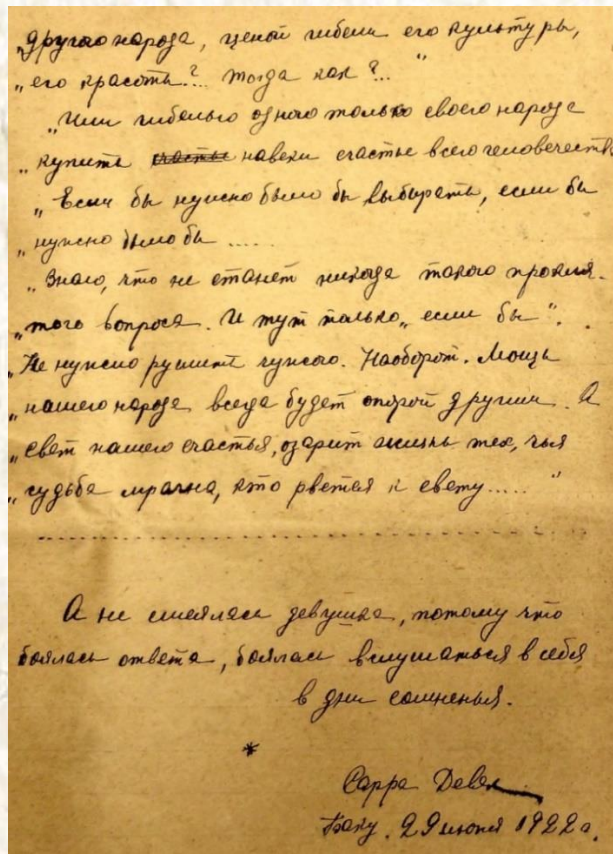 „другого народа, ценой гибели его культуры,
„его красоты?... Тогда как?... "
„Или гибелью одного только своего народа
„купить счастье навеки счастье всего человечества
„Если бы нужно было бы выбирать, если бы
„нужно было бы .....
„Знаю, что не станет никогда такого прокля-
„того вопроса. И тут только „если бы".
„Не нужно рушить чужого. Наоборот. Мощь
„нашего народа всегда будет опорой другим. А
„свет нашего счастья, озарит жизнь тех, чья
„судьба мрачна, кто рвется к свету..... "
А не смеялась девушка, потому что
боялась ответа, боялась вслушаться в себя
в дни сомненья.
*
Сарра
Баку. 29 июня 1922 г.